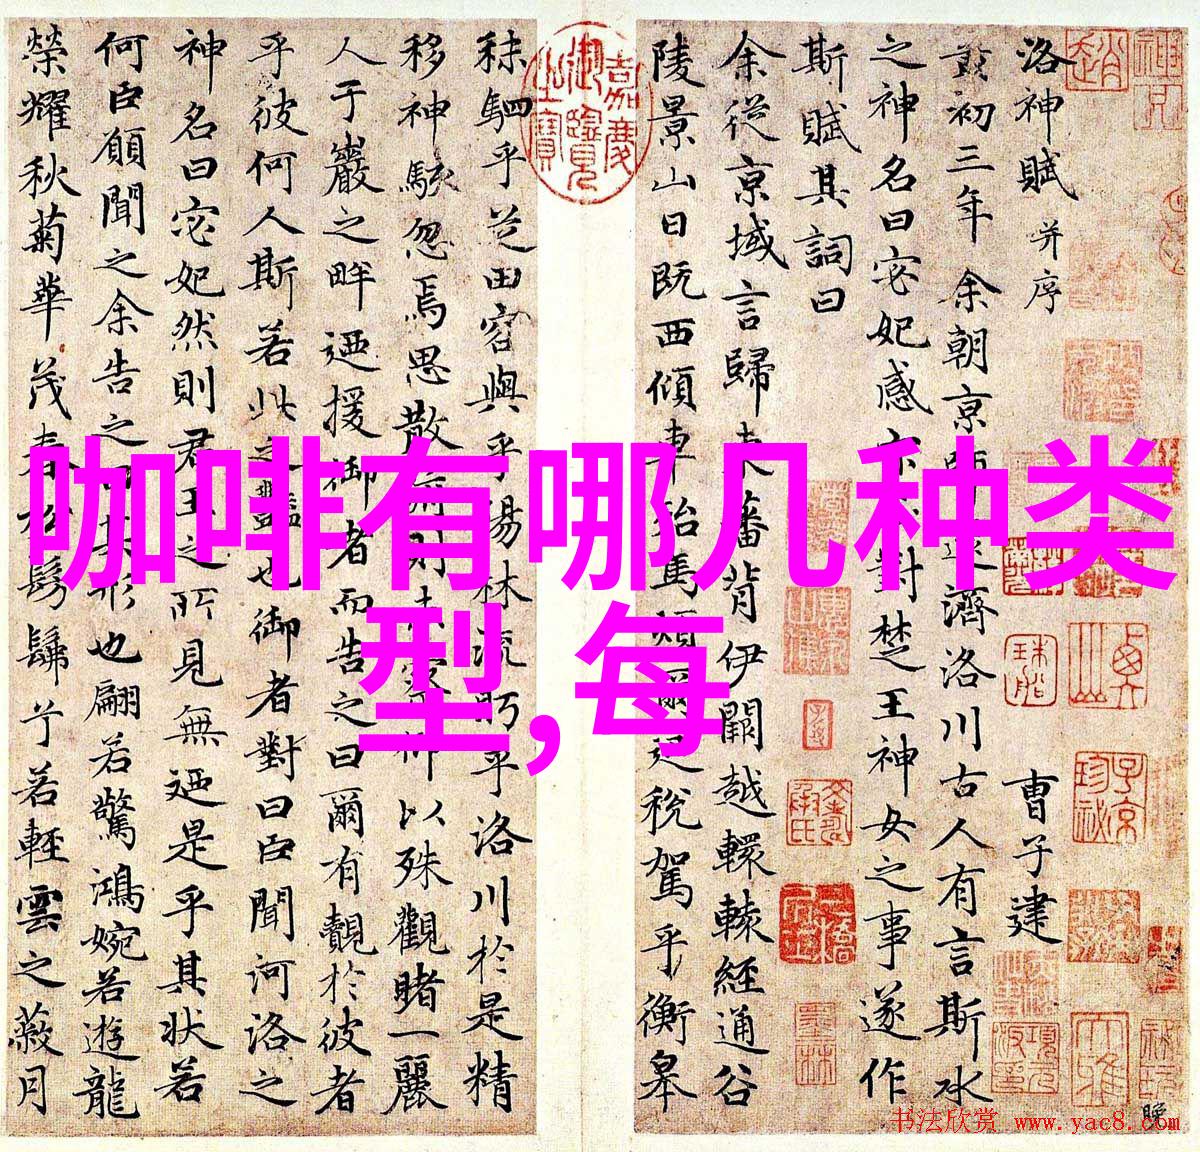 咖啡有哪几种类
型,每
洛神賦 并序 曹子建
初三年余朝京師還濟洛川古人有言斯水
之神名曰宓妃感宋對楚王神女之事遂作
斯賦其詞曰
余從京域言歸東藩背伊闕越轘轅經通谷
陵景山日既西傾車殆馬煩爾迺稅駕乎蘅皋
秣駟乎芝田容與乎楊林流眄乎洛川於是精
移神駭忽焉思散俯則未察仰以殊觀睹一麗
人于巖之畔迺援御者而告之曰爾有覿於彼者
乎彼何人斯若此之豔也御者對曰臣聞河洛之
神名曰宓妃然則君王之所見無迺是乎其狀若
何臣願聞之余告之曰其形也翩若驚鴻婉若遊龍
榮耀秋菊華茂春松髣髴兮若輕雲之蔽月
嘉慶御覽之寶
书法欣赏 www.yac8.com